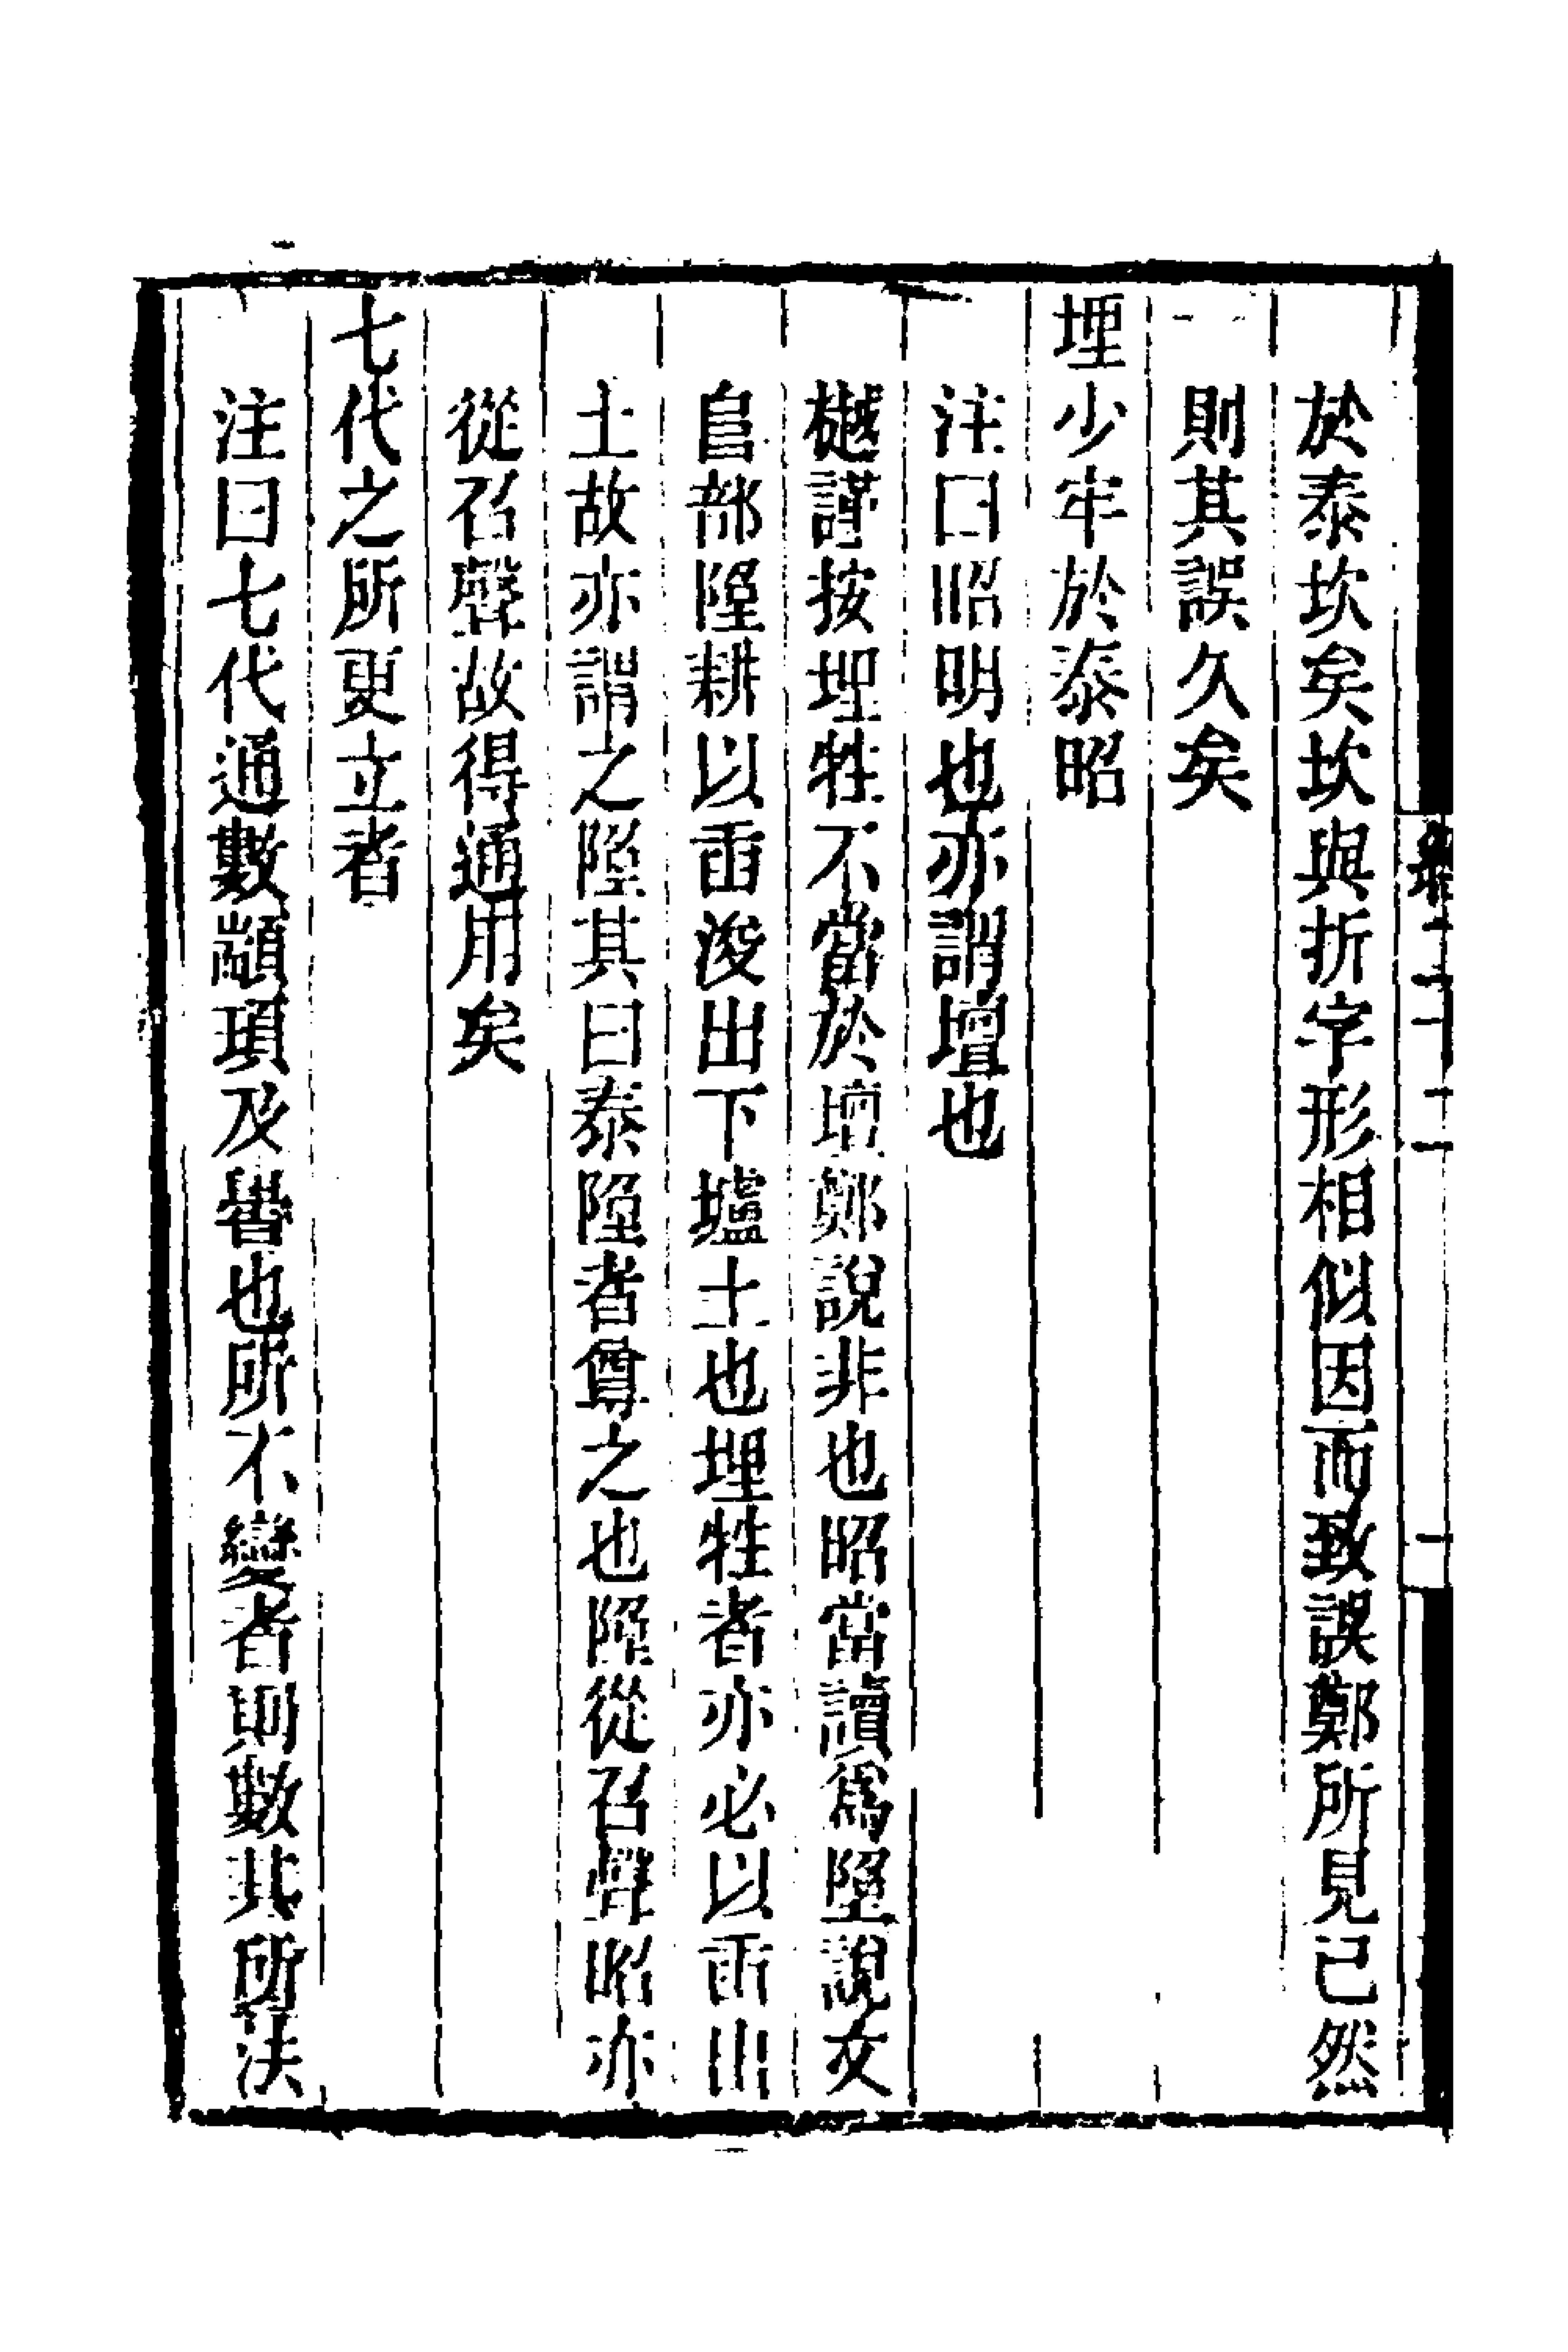 於泰坎矣坎與折字形相似因而致誤鄭所見已然
則其誤久矣
埋少牢於泰昭
注曰昭明也亦謂壇也
樾謹按埋牲不當於壇鄭說非也昭當讀爲䧂說文
𨸏部䧂耕以臿浚出下壚土也埋牲者亦必以臿出
土故亦謂之䧂其曰泰䧂者尊之也䧂從召聲昭亦
從召聲故得通用矣
七代之所更立者
注曰七代通數顓頊及嚳也所不變者則數其所法